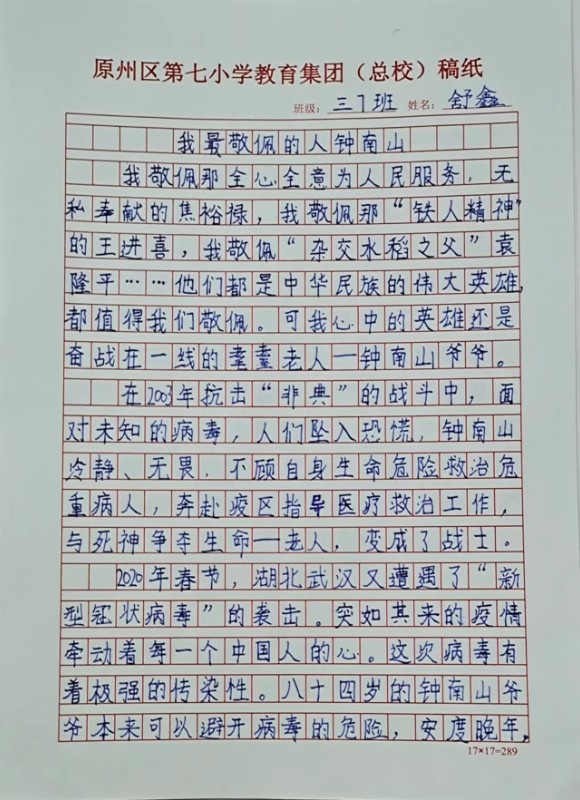 原州区第七小学教育集团（总校）稿纸
班级：三7班 姓名：舒鑫
我最敬佩的人钟南山
我敬佩那全心全意为人民服务，无
私奉献的焦裕禄，我敬佩那“铁人精神”
的王进喜，我敬佩“杂交水稻之父”袁
隆平……他们都是中华民族的伟大英雄，
都值得我们敬佩。可我心中的英雄还是
奋战在一线的耄耋老人—钟南山爷爷。
在2003年抗击“非典”的战斗中，面
对未知的病毒，人们坠入恐慌，钟南山
冷静、无畏，不顾自身生命危险救治危
重病人，奔赴疫区指导医疗救治工作，
与死神争夺生命—老人，变成了战士。
2020年春节，湖北武汉又遭遇了“新
型冠状病毒”的袭击。突如其来的疫情
牵动着每一个中国人的心。这次病毒有
着极强的传染性。八十四岁的钟南山爷
爷本来可以避开病毒的危险，安度晚年，
17×17=289